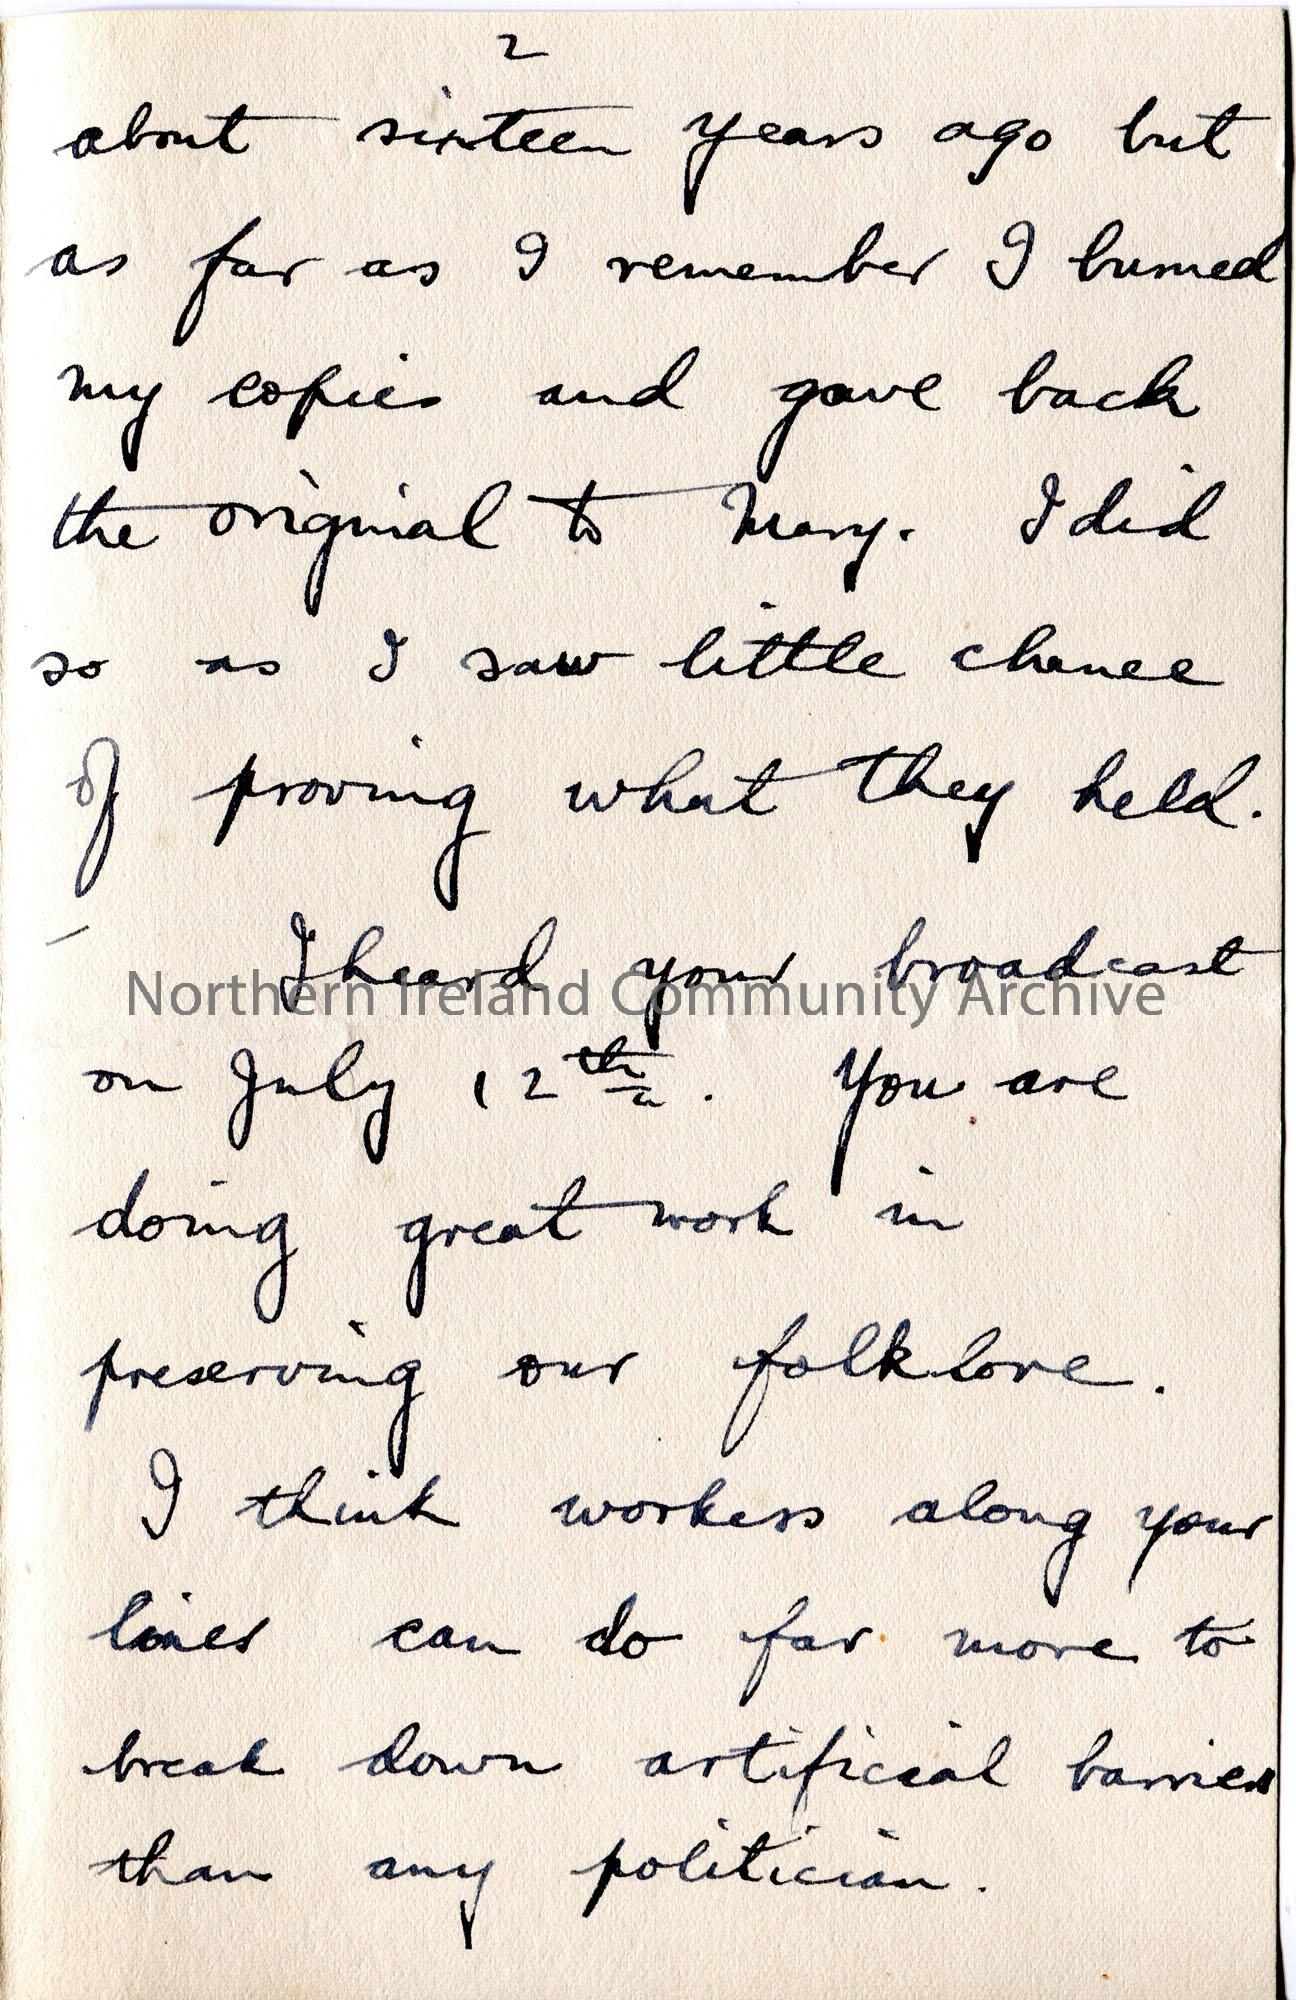 2
about sixteen years ago but
as far as I remember I burned
my copies and gave back
the original to Mary. I did
so as I saw little chance
of proving what they held.
I heard your broadcast
Northern Ireland Community Archive
on July 12th. You are
doing great work in
preserving our folklore.
I think workers along your
lines can do far more to
break down artificial barriers
than any politician.